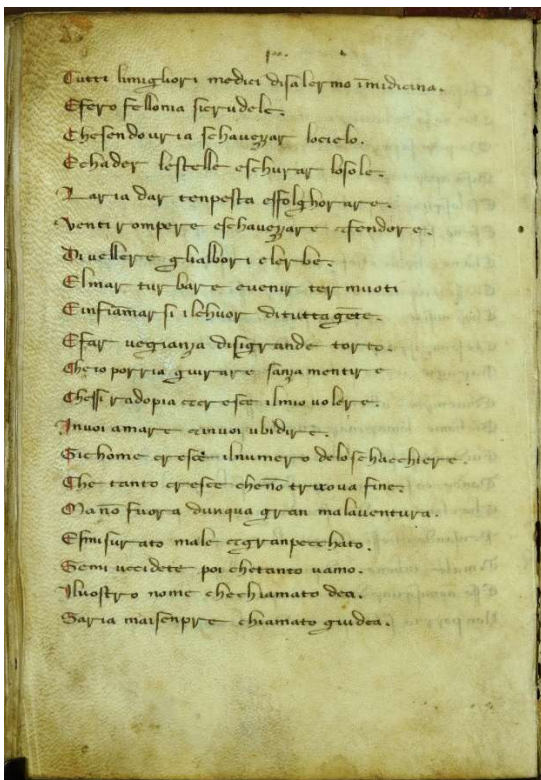 Tutti limigliori medici disalermo īmidicina.
Efero fellonia sicrudele.
Chesendouria schauezzar locielo.
Echader lestelle eschurar losole.
Laria dar tenpesta effolghorare.
Venti rompere eschauezzare efendere.
Diuellere glialbori elerbe.
Elmar turbare euenir termuoti
Einfiamar si ilchuor dituttagēte.
Efar uegianza disigrande torto.
Cheio porria guirare sanza mentire
Chessi radopia ecresce ilmio uolere.
Inuoi amare ainuoi ubidire.
Sichome cresce ilnumero deloschacchiere.
Che tanto cresce chenō truoua fine.
Ma nō fuora dunqua gran malauentura.
Esmisurato male egranpecchato.
Semi uccidete poi chetanto uamo.
Iluostro nome chechiamato dea.
Saria maisenpre chiamato giudea.